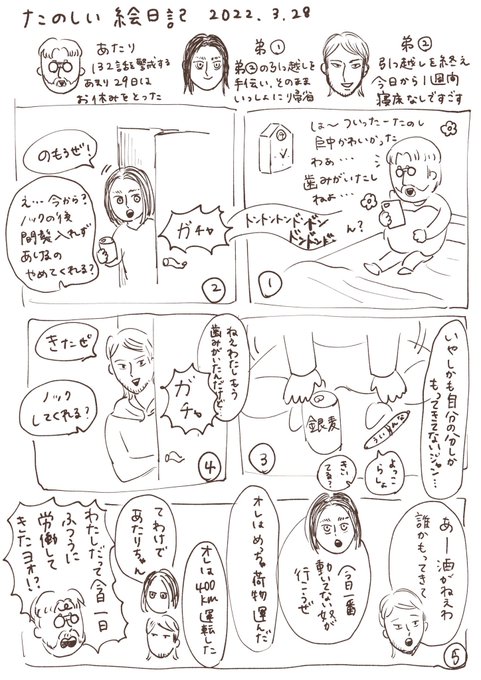 たのしい絵日記 2022.3.28
あたり
132話を警戒する
あまり29日は
お休みをとった
弟①
弟②の引っ越しを
手伝い、そのまま
いっしょに帰省
弟②
引っ越しを終え
今日から1週間
寝床なしですごす
は〜ついったーたのし
田中かわいかった
わぁ…
歯みがいたし
ねよ…
ん?
ドントンドンドンドン
ドンドンド
①
ガチャ
のもうぜ!
え…今から?
ノックの後
間髪入れず
あけるの
やめてくれる?
②
いやしかも自分の分しか
もってきてないジャン…
ういぃんな
よっこ
らしょ
きい
てる?
銀麦
ねえわたしもう
歯みがいたんだけど
③
ガチャ
きたぜ
ノック
してくれる?
④
あー酒がねえわ
誰かもってきて
今日一番
動いてない奴が
行こうぜ
オレはめっちゃ荷物運んだ
オレは400km運転した
てわけで
あたりちゃん
わたしだって今日一日
ふつうに
労働して
きたヨオ!?
⑤